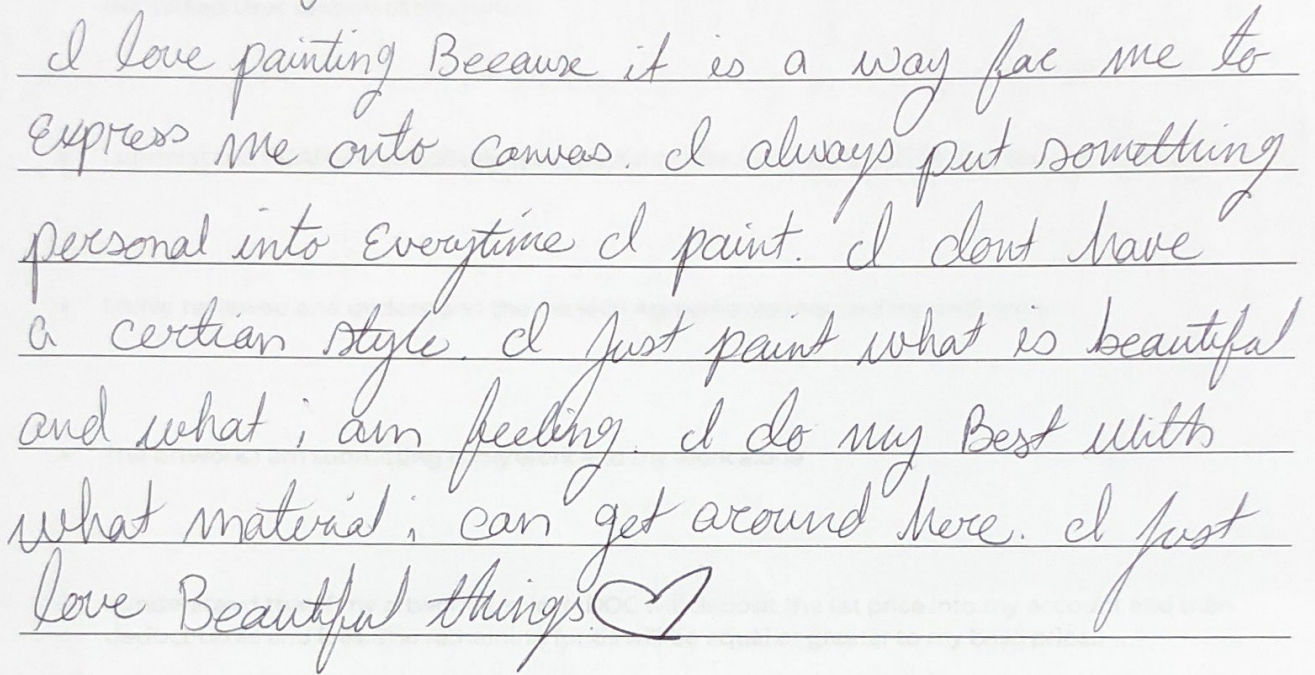 I love painting Because it is a way for me to
Express me onto canvas. I always put something
personal into Everytime I paint. I dont have
a certian style. I Just paint what is beautiful
and what i am feeling. I do my Best With
what material i can get around here. I Just
love Beautiful things♡